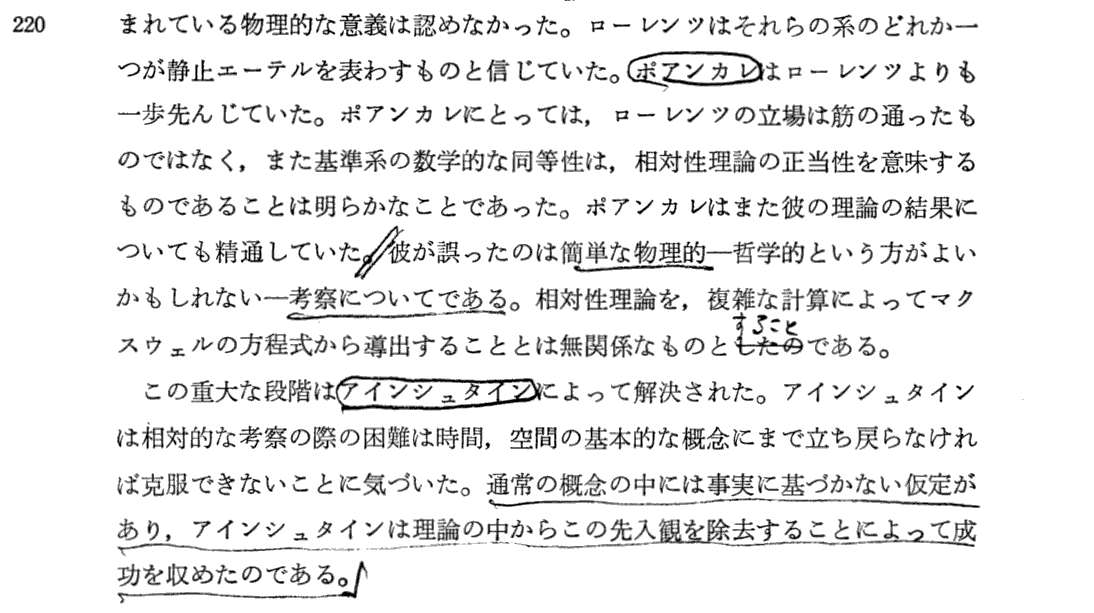 220
まれている物理的な意義は認めなかった。ローレンツはそれらの系のどれか一
つが静止エーテルを表わすものと信じていた。ポアンカレはローレンツよりも
一歩先んじていた。ポアンカレにとっては，ローレンツの立場は筋の通ったも
のではなく，また基準系の数学的な同等性は，相対性理論の正当性を意味する
ものであることは明らかなことであった。ポアンカレはまた彼の理論の結果に
ついても精通していた。彼が誤ったのは簡単な物理的—哲学的という方がよい
かもしれない—考察についてである。相対性理論を，複雑な計算によってマク
すること
スウェルの方程式から導出することとは無関係なものとしたのである。
この重大な段階はアインシュタインによって解決された。アインシュタイン
は相対的な考察の際の困難は時間，空間の基本的な概念にまで立ち戻らなけれ
ば克服できないことに気づいた。通常の概念の中には事実に基づかない仮定が
あり，アインシュタインは理論の中からこの先入観を除去することによって成
功を収めたのである。